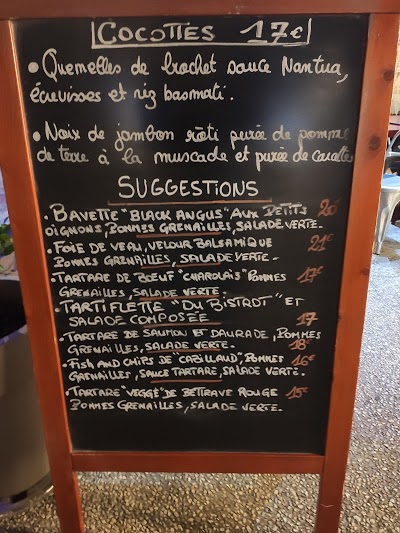 COCOTTES 17€
• Quemelles de brochet sauce Nantua,
écrevisses et riz basmati.
• Noix de jambon rôti purée de pomme
de terre à la muscade et purée de carotte
SUGGESTIONS
• BAVETTE "BLACK ANGUS" AUX PETITS 20
OIGNONS, POMMES GRENAILLES, SALADE VERTE.
• FOIE DE VEAU, VELOUR BALSAMIQUE 21€
POMMES GRENAILLES, SALADE VERTE.
• TARTARE DE BŒUF "CHAROLAIS" POMMES 17€
GRENAILLES, SALADE VERTE.
• TARTIFLETTE "DU BISTROT" ET
SALADE COMPOSÉE 17
• TARTARE DE SAUMON ET DAURADE, POMMES
GRENAILLES, SALADE VERTE. 18€
• FISH AND CHIPS DE "CABILLAUD", POMMES 16€
GRENAILLES, SAUCE TARTARE, SALADE VERTE.
• TARTARE "VEGGÉ" DE BETTRAVE ROUGE 15€
POMMES GRENAILLES, SALADE VERTE.